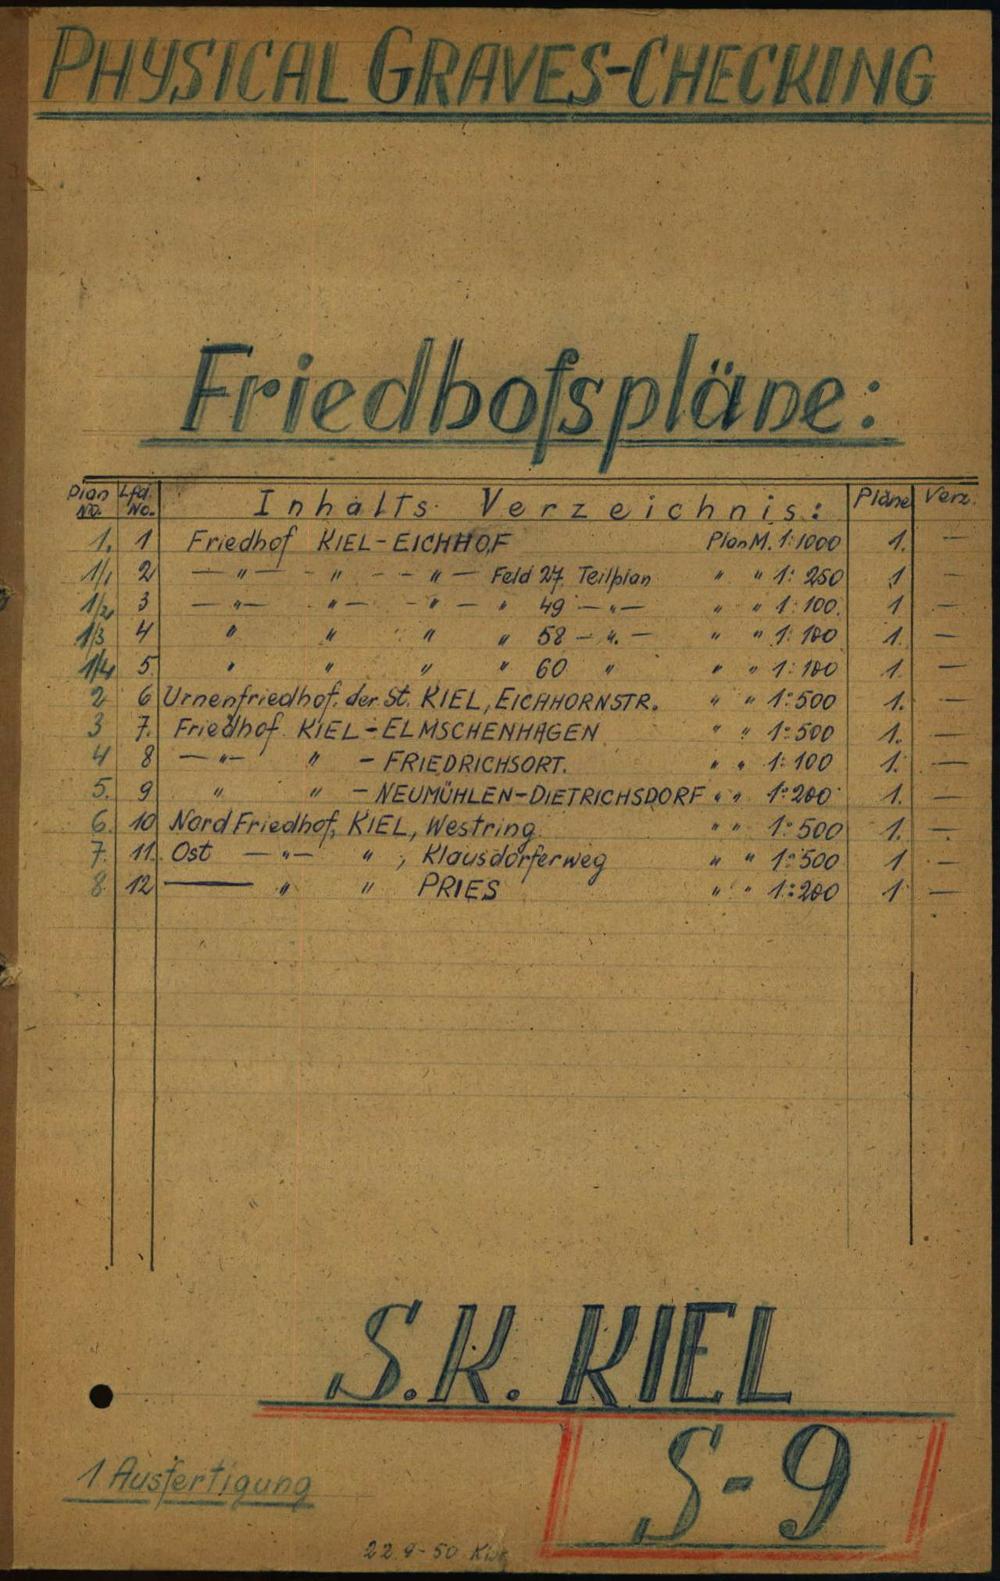 PHYSICAL GRAVES-CHECKING
Friedhofspläne:
Plan No. Lfd. No. Inhalts Verzeichnis: Pläne Verz.
1. 1 Friedhof KIEL-EICHHOF Plan M. 1:1000 1. —
1/1 2 — " — " — — " — Feld 27. Teilplan " " 1:250 1 —
1/2 3 — " — " — — " — " 49 — " — " " 1:100. 1 —
1/3 4 " " " " 58 — " — " " 1:100 1. —
1/4 5 " " " " 60 " " " 1:100 1. —
2 6 Urnenfriedhof. der St. KIEL, EICHHORNSTR. " " 1:500 1. —
3 7. Friedhof KIEL-ELMSCHENHAGEN " " 1:500 1. —
4 8 — " — " - FRIEDRICHSORT. " " 1:100 1. —
5. 9 " " - NEUMÜHLEN-DIETRICHSDORF " " 1:200 1. —
6. 10 Nord Friedhof, KIEL, Westring " " 1:500 1. —
7. 11. Ost — " — " , Klausdorferweg " " 1:500 1 —
8. 12 — " " PRIES " " 1:200 1 —
S.K. KIEL
S-9
1 Ausfertigung
22.9-50